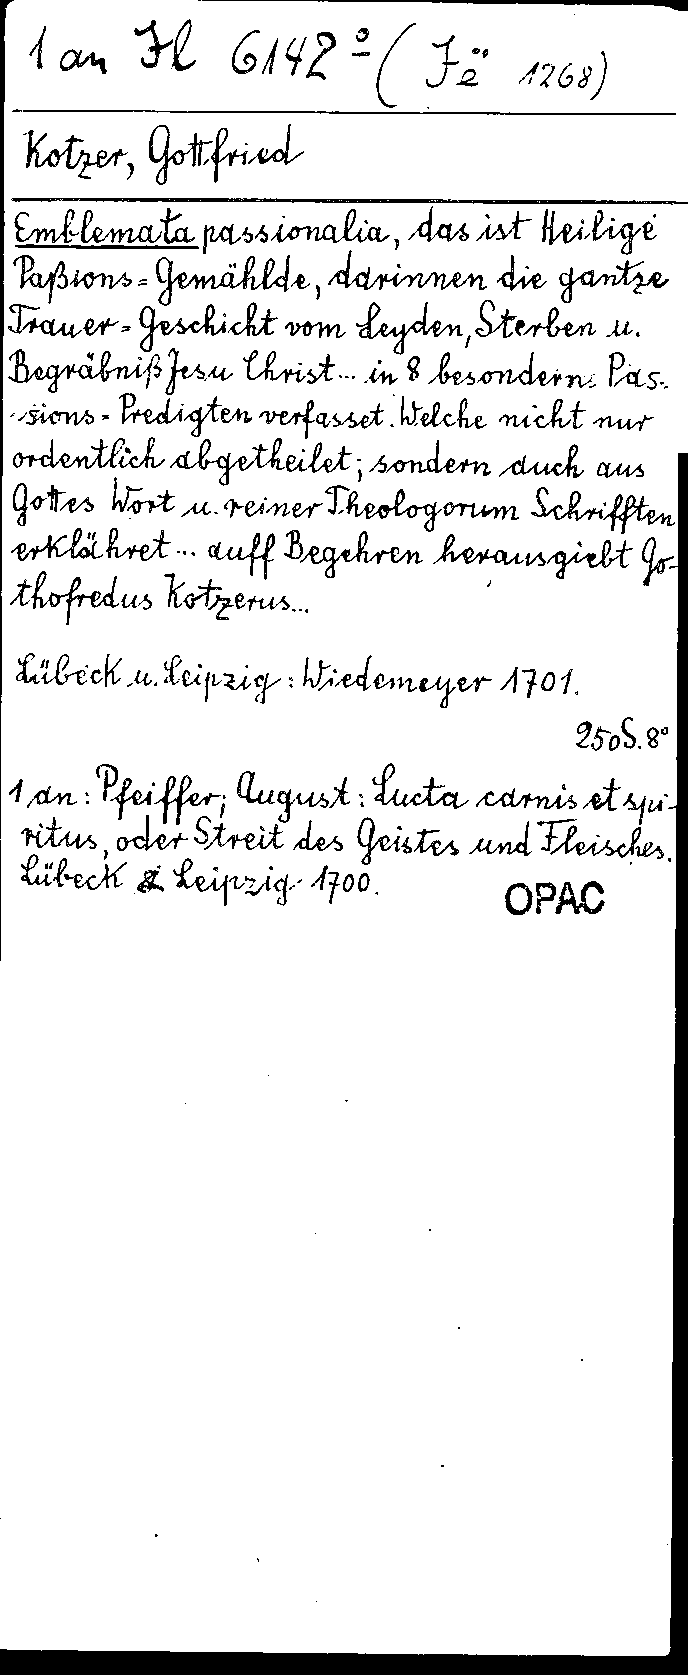 1 an Jl 6142° (Jë 1268)
Kotzer, Gottfried
Emblemata passionalia, das ist Heilige
Paßions=Gemählde, darinnen die gantze
Trauer=Geschicht vom Leyden, Sterben u.
Begräbniß Jesu Christ... in 8 besondern Pas-
sions=Predigten verfasset. Welche nicht nur
ordentlich abgetheilet; sondern auch aus
Gottes Wort u. reiner Theologorum Schrifften
erklähret... auff Begehren herausgiebt Go-
thofredus Kotzerus...
Lübeck u. Leipzig: Wiedemeyer 1701.
250S. 8°
1 an: Pfeiffer, August: Lucta carnis et spi-
ritus, oder Streit des Geistes und Fleisches.
Lübeck & Leipzig 1700.
OPAC